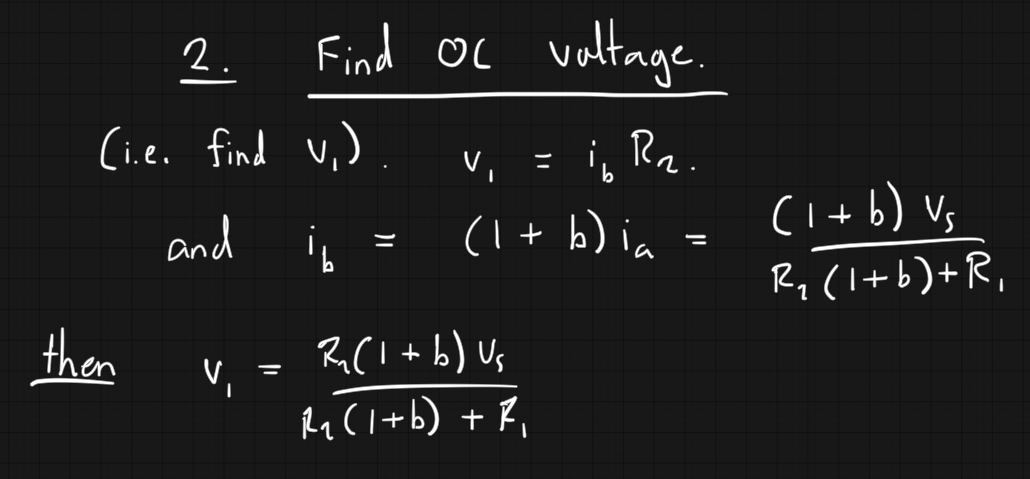 2. Find OC voltage.
(i.e. find v₁). v₁ = i_b R₂.
and i_b = (1 + b) i_a = (1 + b) v_s / R₂ (1+b) + R₁
then v₁ = R₂(1 + b) v_s / R₂(1+b) + R₁